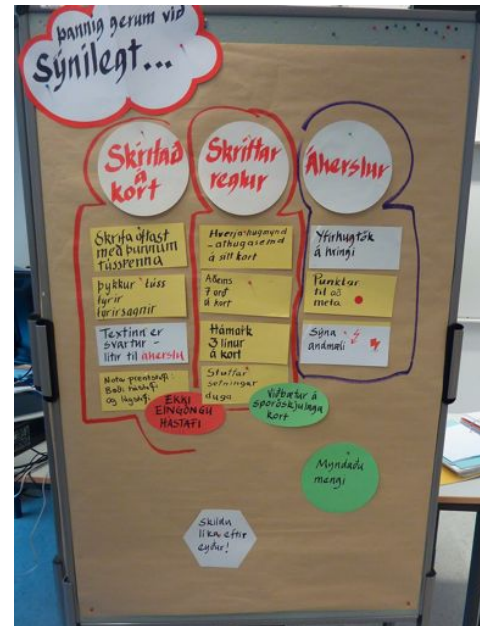 þannig gerum við
Sýnilegt...
Skrifað
á
kort
Skriftar
reglur
Áherslur
Skrifa oftast
með þunnum
tússpenna
Þykkur túss
fyrir
fyrirsagnir
Textinn er
svartur -
litir til áherslu
Nota prentstafi:
Bæði hástafi
og lágstafi
EKKI
EINGÖNGU
HÁSTAFI
Hverja hugmynd
- athugasemd
á sitt kort
Aðeins
7 orð
á kort
Hámark
3 línur
á kort
Stuttar
setningar
duga
Viðbætur á
sporöskjulaga
kort
Yfirhugtök
á hringi
Punktar
til að
meta
Sýna
andmæli
Myndaðu
mengi
Skildu
líka eftir
eyður!